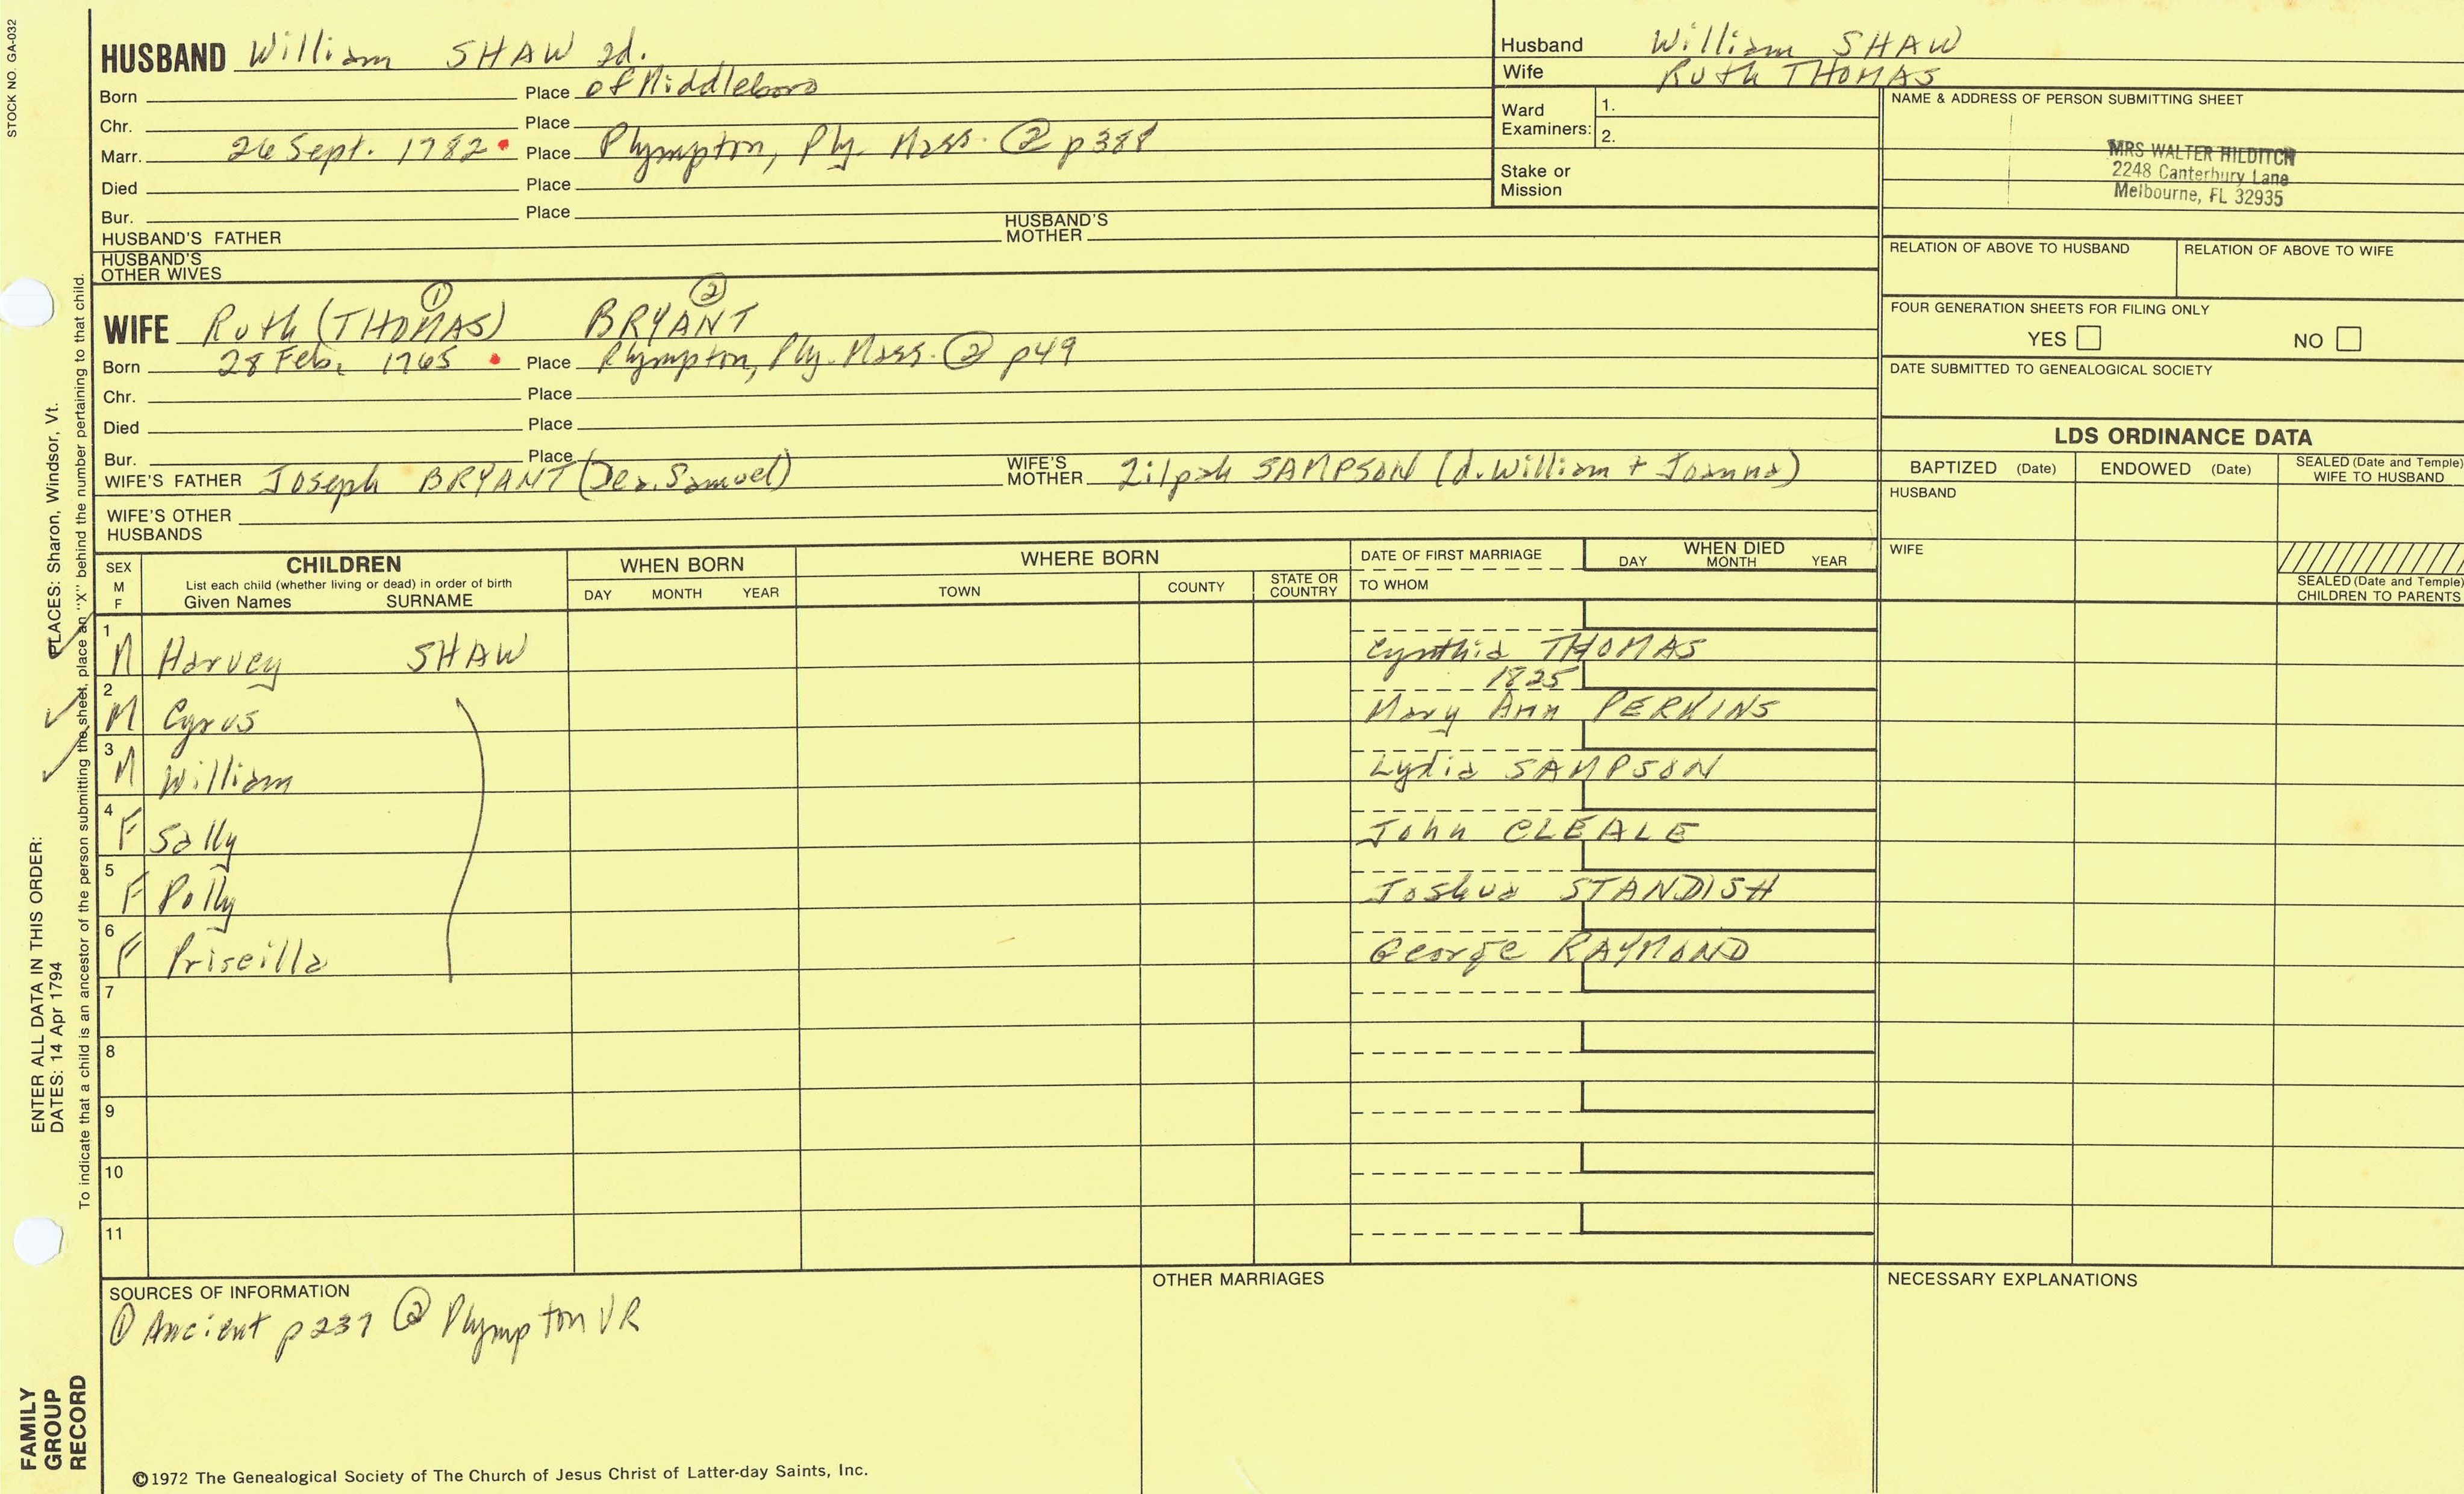 STOCK NO. GA-032
HUSBAND William SHAW 2d.
Born Place of Middleboro
Chr. Place
Marr. 26 Sept. 1782 Place Plympton, Ply. Mass. ② p388
Died Place
Bur. Place
HUSBAND'S FATHER HUSBAND'S MOTHER
HUSBAND'S OTHER WIVES
Husband William SHAW
Wife Ruth THOMAS
Ward Examiners: 1.
2.
Stake or Mission
NAME & ADDRESS OF PERSON SUBMITTING SHEET
MRS WALTER HILDITCH
2248 Canterbury Lane
Melbourne, FL 32935
RELATION OF ABOVE TO HUSBAND RELATION OF ABOVE TO WIFE
FOUR GENERATION SHEETS FOR FILING ONLY
YES NO
DATE SUBMITTED TO GENEALOGICAL SOCIETY
① ②
WIFE Ruth (THOMAS) BRYANT
Born 28 Feb. 1765 Place Plympton, Ply. Mass. ② p49
Chr. Place
Died Place
Bur. Place
WIFE'S FATHER Joseph BRYANT (Dea. Samuel) WIFE'S MOTHER Zilpah SAMPSON (d. William + Joanna)
WIFE'S OTHER HUSBANDS
LDS ORDINANCE DATA
BAPTIZED (Date) ENDOWED (Date) SEALED (Date and Temple) WIFE TO HUSBAND
HUSBAND
WIFE
SEALED (Date and Temple) CHILDREN TO PARENTS
SEX M F
CHILDREN
List each child (whether living or dead) in order of birth
Given Names SURNAME
WHEN BORN
DAY MONTH YEAR
WHERE BORN
TOWN COUNTY STATE OR COUNTRY
DATE OF FIRST MARRIAGE
TO WHOM
WHEN DIED
DAY MONTH YEAR
1 M Harvey SHAW Cynthia THOMAS
1825
2 M Cyrus Mary Ann PERKINS
3 M William Lydia SAMPSON
4 F Sally John CLEALE
5 F Polly Joshua STANDISH
6 F Priscilla George RAYMOND
7
8
9
10
11
SOURCES OF INFORMATION
① Ancient p237 ② Plympton VR
OTHER MARRIAGES
NECESSARY EXPLANATIONS
©1972 The Genealogical Society of The Church of Jesus Christ of Latter-day Saints, Inc.
FAMILY
GROUP
RECORD
ENTER ALL DATA IN THIS ORDER:
DATES: 14 Apr 1794 PLACES: Sharon, Windsor, Vt.
To indicate that a child is an ancestor of the person submitting the sheet, place an "X" behind the number pertaining to that child.